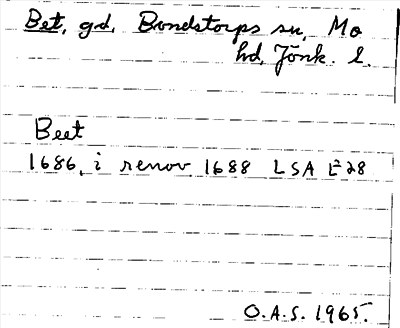 Bet, gd, Bondstorps sn, Mo
hd, Jönk. l.
Beet
1686, i renov 1688 LSA E²28
O.A.S. 1965.